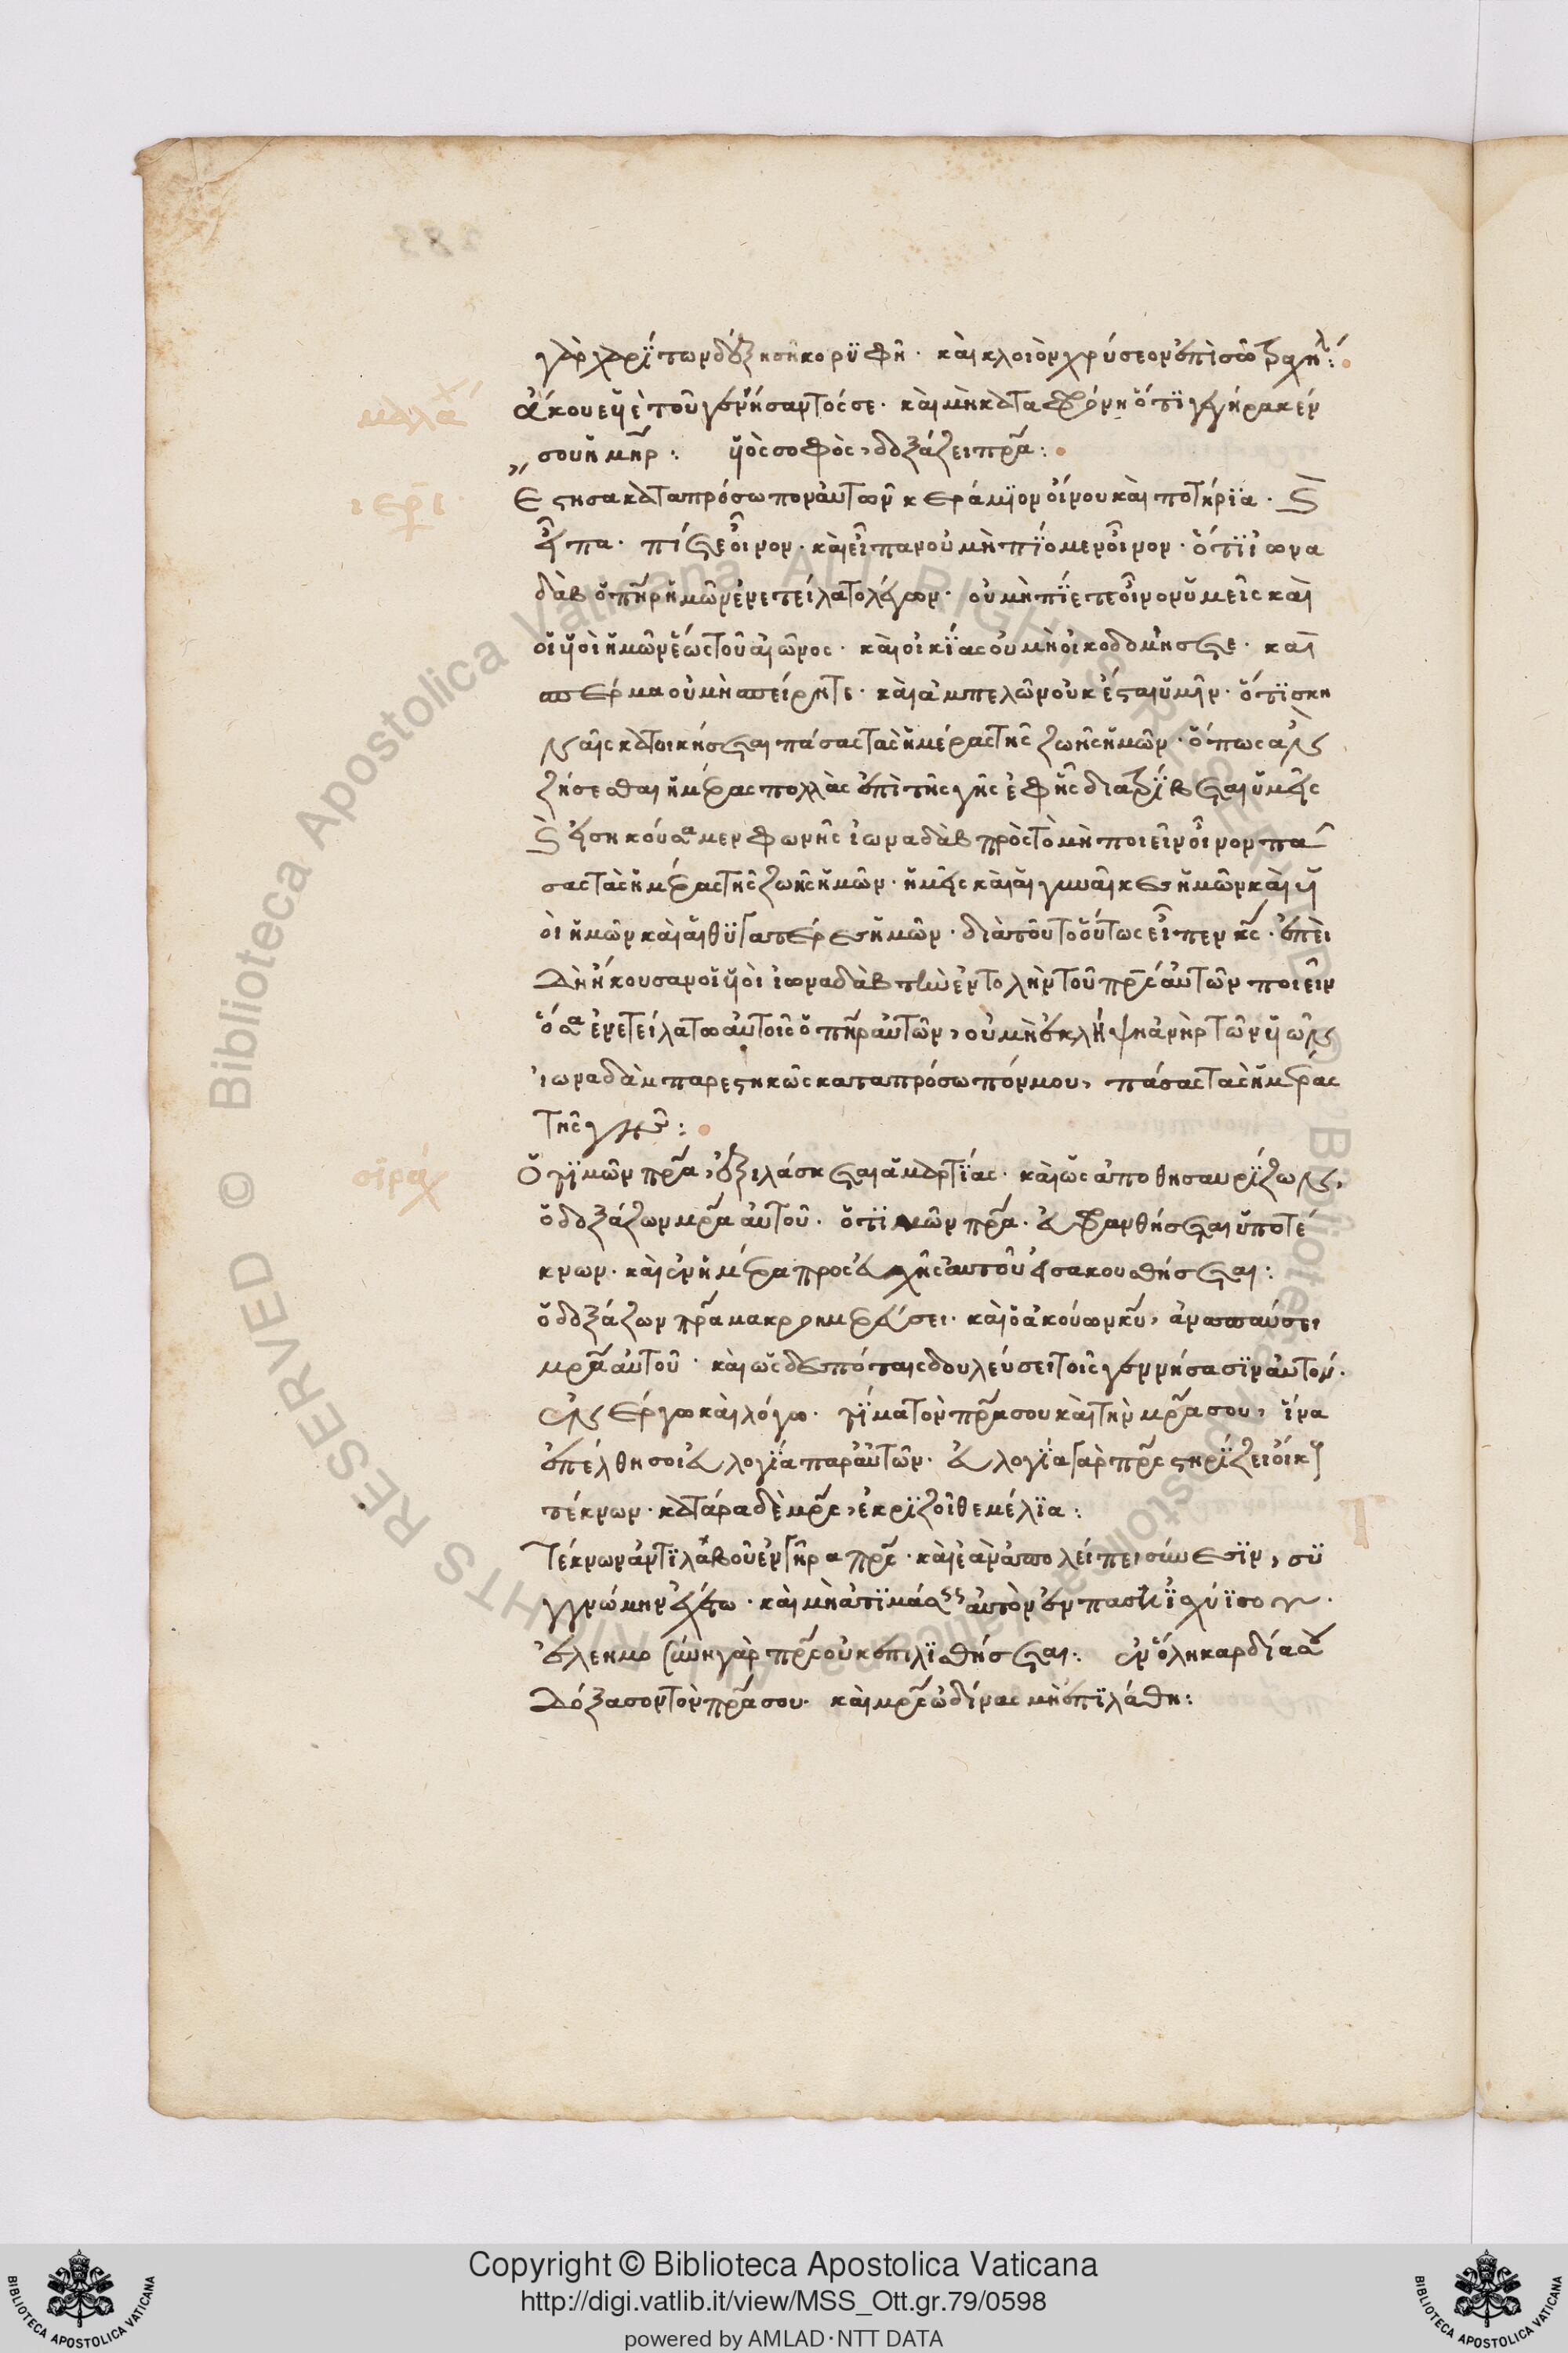 283
γὰρ χαρίτων δέξη σῆ κορϋφῆ· καὶ κλοιὸν χρύσεον ἐπὶ σῶ τραχήλ:
μαλαχ
ἄκουε ϋἱὲ τοῦ γεννήσαντός σε· καὶ μὴ καταφρόνη ὅτϊ γεγήρακέν
σου ἡ μηρ: ϋἱὸς σοφὸς, δοξάζει πρα:
ιερι·
Εστησα κατὰ πρόσωπον αὐτῶν κεράμϊον οἴνου καὶ ποτήρϊα· καὶ
εἶπα· πίετε οἶνον· καὶ εἶπαν οὐ μὴ πϊόμεν οἶνον· ὅτϊ ἰωνα
δὰβ ὁ πηρ ἡμῶν ἐνετείλατο λέγων· οὐ μὴ πϊετε οἶνον ὑμεῖς καὶ
οἱ ϋἱοὶ ἡμῶν ἕως τοῦ αἰῶνος· καὶ οἰκϊας οὐ μὴ οἰκοδομήσητε· καὶ
σπέρμα οὐ μὴ σπείρητε· καὶ ἀμπελὼν οὐκ ἔσται ὑμῖν· ὅτϊ σκη
ναῖς κατοικήσεται πάσας τὰς ἡμέρας τῆς ζωῆς ἡμῶν· ὅπως ἂν
ζήσεσθαι ἡμέρας πολλὰς ἐπὶ τῆς γῆς ἐφῆς διατρϊβεται ὑμεῖς
καὶ εἰσηκούσαμεν φωνῆς ἰωναδὰβ πρὸς τὸ μὴ ποιεῖν οἶνον πα
σας τὰς ἡμέρας τῆς ζωῆς ἡμῶν· ἡμεῖς καὶ αἱ γυναῖκες ἡμῶν καὶ ϋἱ
οὶ ἡμῶν καὶ αἱ θϋγατέρες ἡμῶν· διὰ τοῦτο οὕτως εἶπεν κς· ἐπεὶ
δὴ ἤκουσαν οἱ ϋἱοὶ ἰωναδὰβ τὴν ἐντολὴν τοῦ πρς αὐτῶν ποιεῖν
ὅσα ἐνετείλατω αὐτοῖς ὁ πηρ αὐτῶν, οὐ μὴ ἐκλήψη ἀνὴρ τῶν ϋἱῶν
ἰωναδὰμ παρεστηκὼς κατα πρόσωπόν μου, πάσας τὰς ἡμέρας
τῆς γῆς:
σϊραχ
Ὁ τϊμῶν πρα, ἐξιλάσκεται ἁμαρτϊας· καὶ ὡς ἀποθησαυρϊζων,
ὁ δοξάζων μρα αὐτοῦ· ὁ τϊμῶν πρα· εὐφρανθήσεται ὑπο τέ
κνων· καὶ ἐν ἡμέρα προσευχῆς αὐτοῦ εἰσακουσθήσεται:
ὁ δοξάζων πρα μακροημερεύσει· καὶ ὁ ἀκούων κυ, ἀναπαύσει
μρα αὐτοῦ· καὶ ὡς δεσπόταις δουλεύσει τοῖς γεννήσασϊν αὐτόν·
ἐν ἔργω καὶ λόγω· τϊμα τὸν πρα σου καὶ τὴν μρα σου, ἵνα
ἐπέλθη σοι εὐλογϊα παρ αὐτῶν· εὐλογϊα γὰρ πρς στηρϊζει οἴκους
τέκνων· κατάρα δὲ μρς, ἐκρϊζοῖ θεμέλϊα:
Τέκνων ἀντϊλαβοῦ ἐν γῆρα πρς· καὶ ἐὰν ἀπολείπει σύνεσϊν, σϋ
γγνώμην ἔχε· καὶ μὴ ἀτϊμάσης αὐτὸν ἐν πάση ἰσχύϊ σου·
ἐλεημοσύνη γὰρ πρς οὐκ ἐπιλϊσθήσεται: ἐν ὅλη καρδία σου
Δόξασον τὸν πρα σου· καὶ μρς ὠδίνας μὴ ἐπϊλάθη:
Copyright © Biblioteca Apostolica Vaticana
http://digi.vatlib.it/view/MSS_Ott.gr.79/0598
powered by AMLAD·NTT DATA